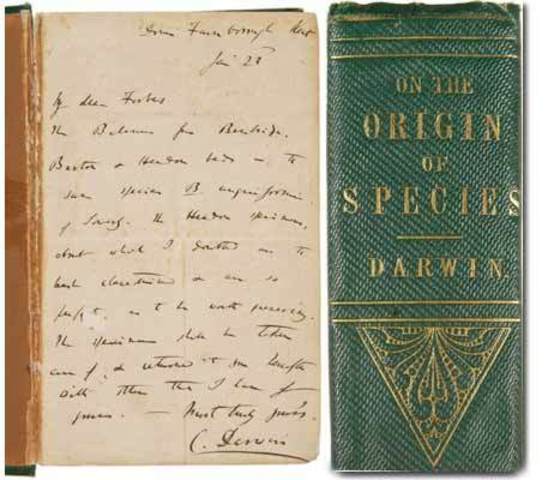 Down Farnborough Kent
My dear Forbes
The Balanus from Bembridge,
Barton & Headon beds is the
same species B unguiformis
of Sowerby. The Headon specimens,
about which I doubted are the
best characterised & are so
perfect, as to be worth preserving.
The specimens shall be taken
care of, & returned to you together
with others that I have of
yours. — Most truly yours.
C. Darwin
ON THE
ORIGIN
OF
SPECIES
DARWIN.